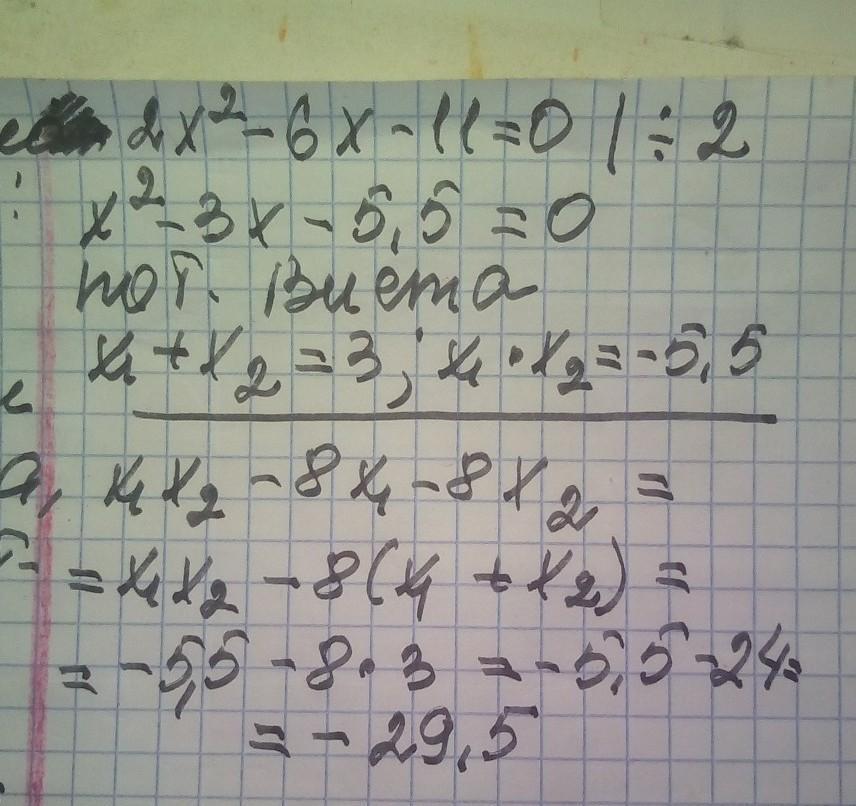 2x² - 6x - 11 = 0 | ÷ 2
x² - 3x - 5,5 = 0
по т. Виета
x₁ + x₂ = 3; x₁ · x₂ = -5,5
x₁x₂ - 8x₁ - 8x₂ =
= x₁x₂ - 8(x₁ + x₂) =
= -5,5 - 8 · 3 = -5,5 - 24 =
= - 29,5